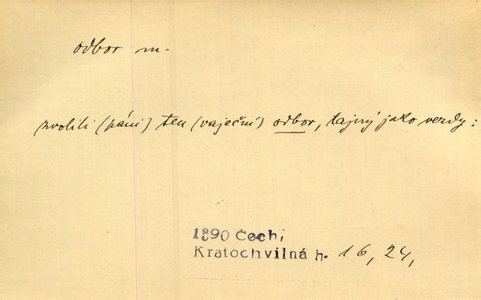 odbor m.
zvolili (páni) ten (vaječní) odbor, tajný jako verdy:
1890 Čech,
Kratochvilná h. 16, 24,